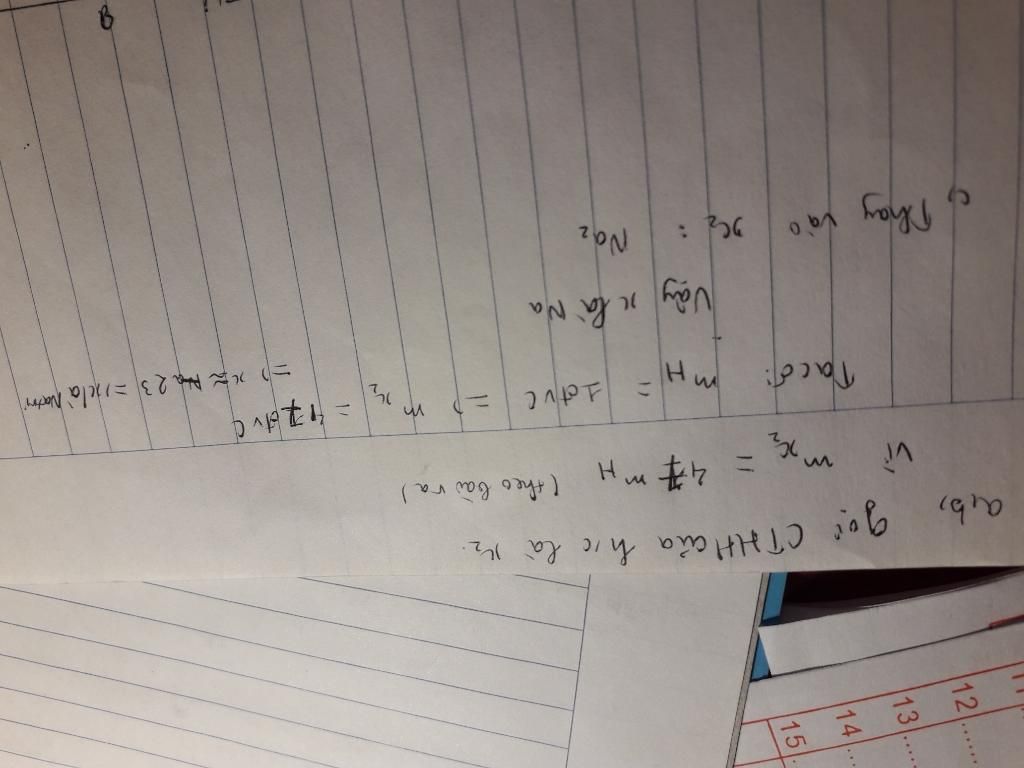 a,b, gọi CTHH của h/c là x₂.
Vì m x₂ = 47 mH (theo bài ra)
Ta có: mH = 1đvC => m x₂ = 47 đvC => x ≈ Na 23 => x là Natri
Vậy x là Na
c, Thay vào x₂ : Na₂
12
13
14
15